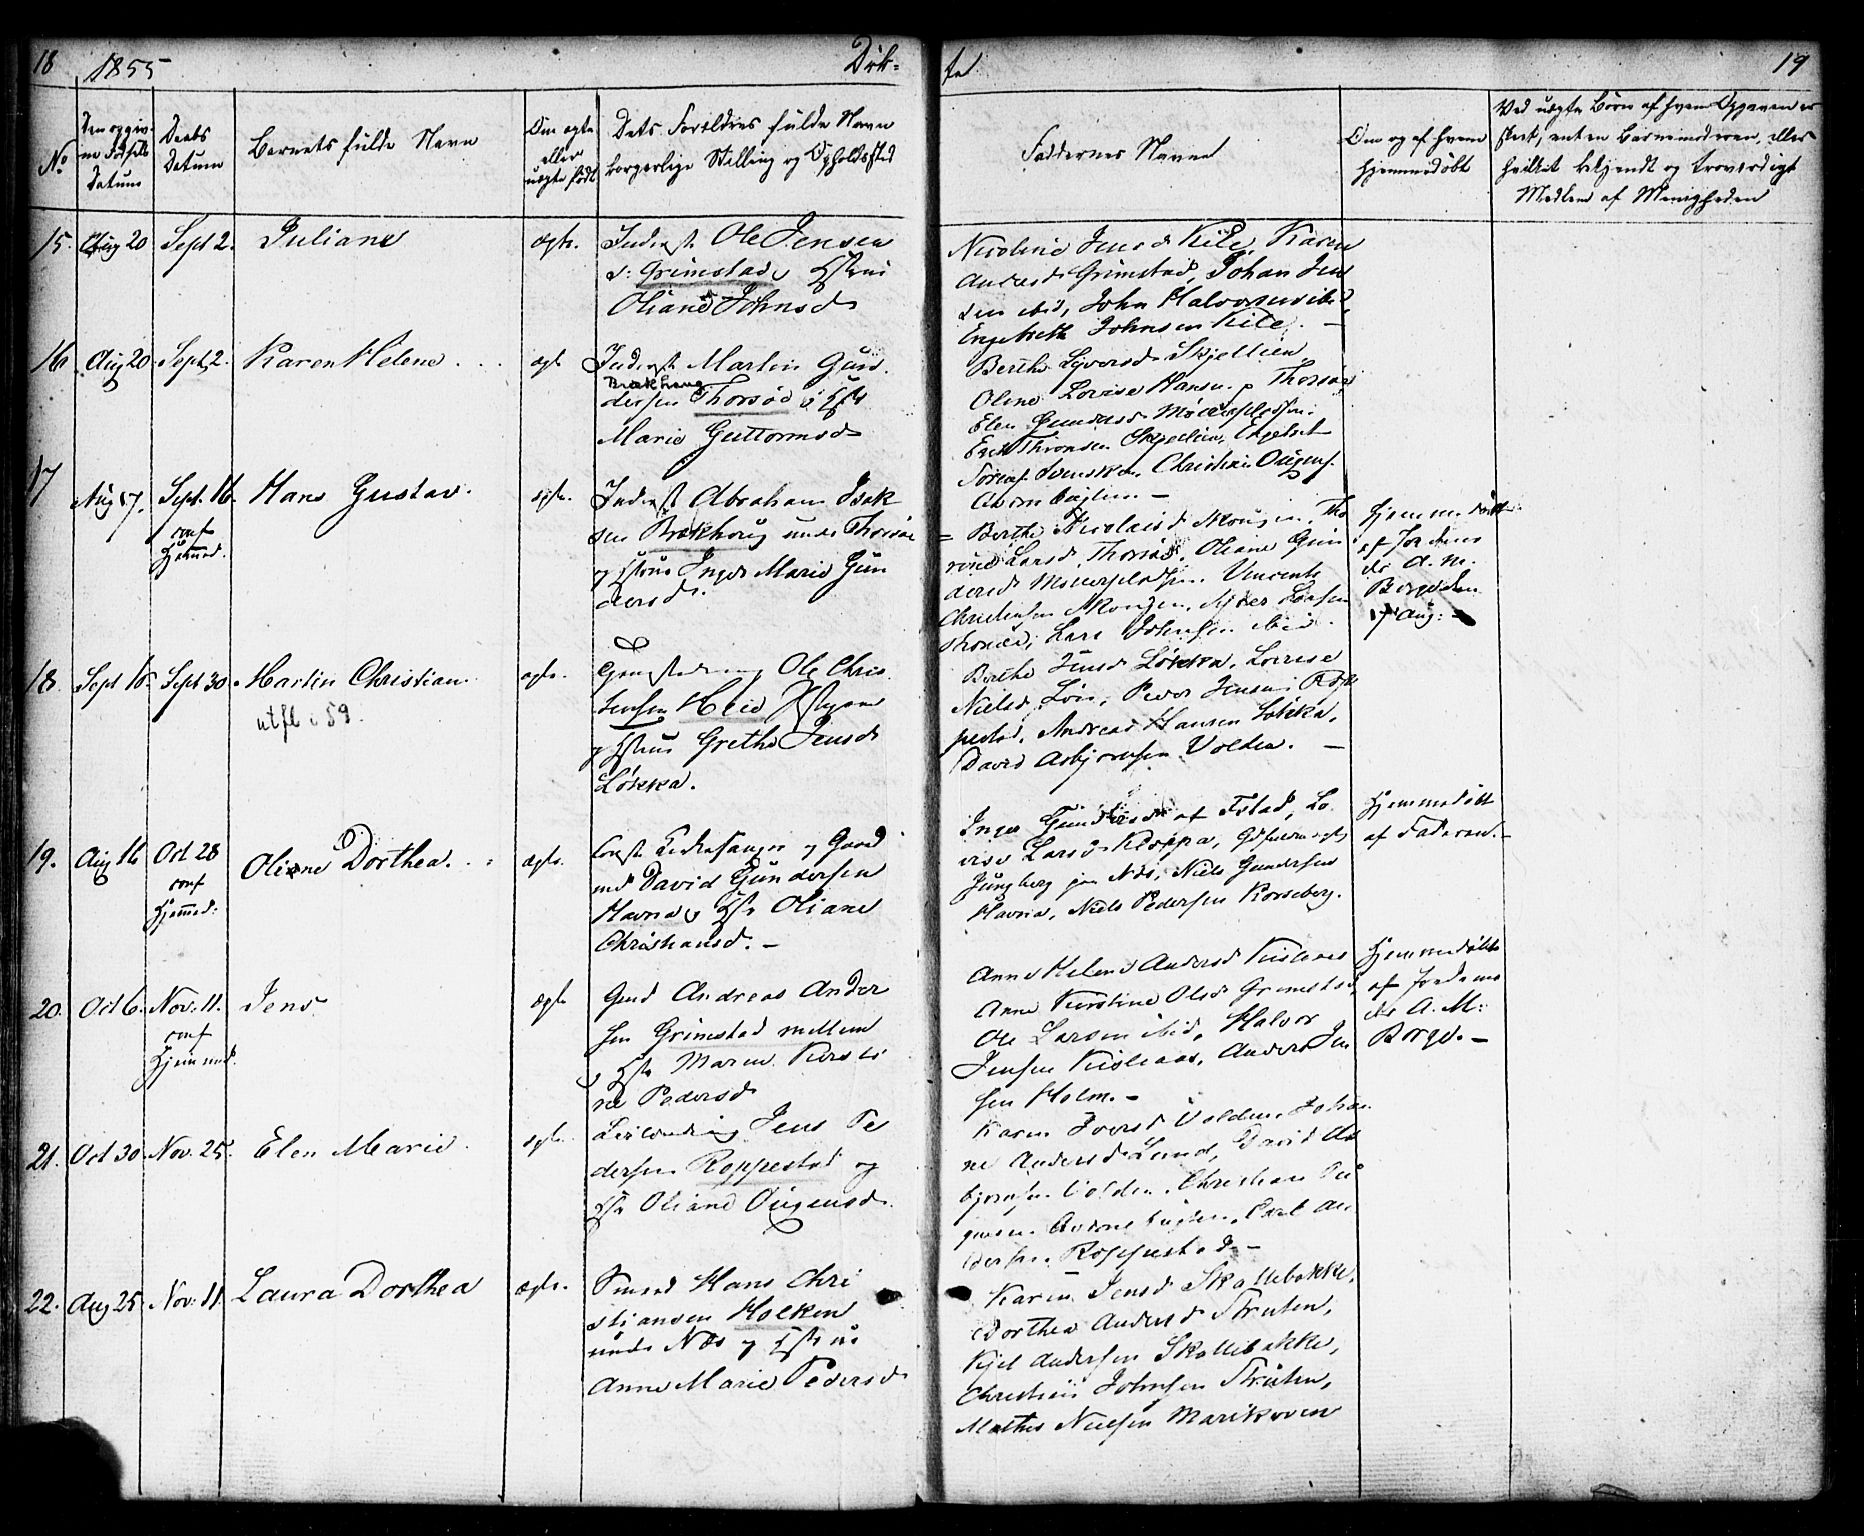 18 1855 Døb=
te 19
No
Den opgivne Fødsels Datum
Daabs Datum
Barnets fulde Navn
Om ægte eller uægte født
Dets Forældres fulde Navn
borgerlige Stilling og Opholdssted
Faddernes Navne
Om og af hvem hjemmedøbt
Ved uægte Børn af hvem Opgaven er
skeet, enten Barnemoderen, eller
hvilket bekjendt og troværdigt
Medlem af Menigheden
15. Aug 20 Sept 2. Juliane ægte.
Inderst Ole Jensen
Grimstad, Hstrue
Oliane Johnsd
Nicoline Jensd Kile, Karen
Andersd Grimstad, Johan Jen
sen ibid, John Halvorsen ibid,
Engebreth Johnsen Kile. —
16 Aug 20 Sept 2. Karen Helene ægt
Inderst Martin Gun
Brækhoug
dersen Thorsø Hstr
Marie Guttormsd
Berthe Syversd Skjellien
Oline Lovise Hansen Thorsø
Elen Gundersd
Erik Thronsen Skjellien, Engebret
Svensken, Christian
17 Aug 17. Sept. 16. conf Hjemmed. Hans Gustav. ægte.
Inderst Abraham Isak
sen Brækhoug under Thorsøe
og Hstrue Inger Marie Gun
dersd.
Berthe Nicolaisd
Larsd Thorsøe, Oliane Gun
dersd
Lars Johnsen ibid.
Hjemmedøbt
af Jordemo
dr A. M.
Borge den
17 Aug:
18. Sept 16. Sept 30. Martin Christian. ægte.
utfl i 59.
Ole Chris
tensen Heie
og Hstrue Grethe Jensd
Løkka.
Berthe Jensd Løkka, Lovise
Nielsd Løie, Peder Jensen Rop
pestad, Andreas Hansen Løkka,
David Asbjørnsen Volden. —
19. Aug 16 Oct 28 conf Hjemmed: Oliane Dorthea. ægte.
Kirkesanger og Gaard
md David Gundersen
Havna, Hstr Oliane
Christiansd. —
Inger Gundersd af Fostad, Lo
vise Larsd Kloppa,
Ljungberg Næs, Niels Gundersen
Havna, Niels Pedersen Korseberg.
Hjemmedøbt
af Faderen. —
20. Oct 6. Nov. 11. conf Hjemmed. Jens ægte
Gmd Andreas Ander
sen Grimstad mellem
og Hstr Maren Kersti
ne Pedersd
Anne Helene Andersd
Anne Kirstine Olsd Grimstad,
Ole Larsen ibid, Halvor
Jensen, Anders Jen
sen Holm. —
Hjemmedøbt
af Jordemo
dr A. M.
Borge. —
21. Oct 30 Nov. 25. Elen Marie ægte
Leilending Jens Pe
dersen Roppestad og
Hstr Oliane
Karen Iversd Volden, Johan
ne Andersd Lund, David As
bjørnsen Volden, Christian
Carl An
dersen Roppestad. —
22. Aug 25. Nov. 11. Laura Dorthea ægte.
Smed Hans Chri
stiansen Holken
under Næs og Hstrue
Anne Marie Pedersd
Karen Jensd Skallebakke,
Dorthea Andersd Struten,
Kjel Andersen Skallebakke,
Christian Johnsen Struten,
Mathis Nielsen